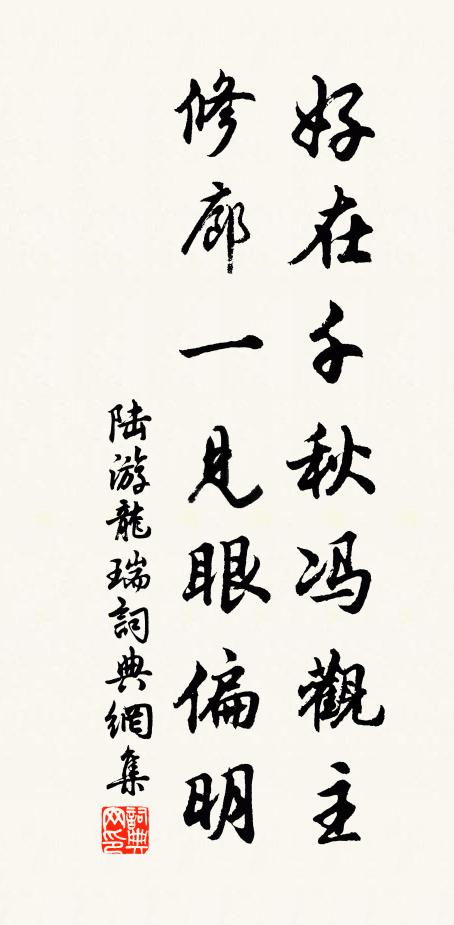 好在千秋冯觀主
修廊一見眼偏明
陆游龍瑞詞典網集
詞典网印